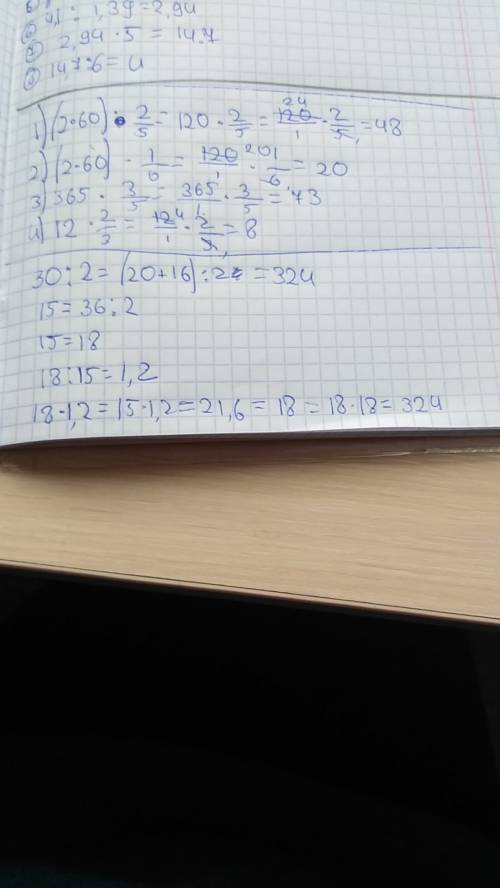 4) : 1,39=2,94
2,94 · 5 = 14.7
③ 147:6= 4
1) (2·60) · 2/5 = 120 · 2/5 = 120 24/1 · 2/5 = 48
2) (2·60) · 1/6 = 120 20/1 · 1/6 = 20
3) 365 · 3/5 = 365/1 · 3/5 = 73
4) 12 · 2/3 = 12 4/1 · 2/3 = 8
30:2=(20+16):2 =324
15=36:2
15=18
18:15=1,2
18·1,2=15·1,2=21,6=18=18·18=324